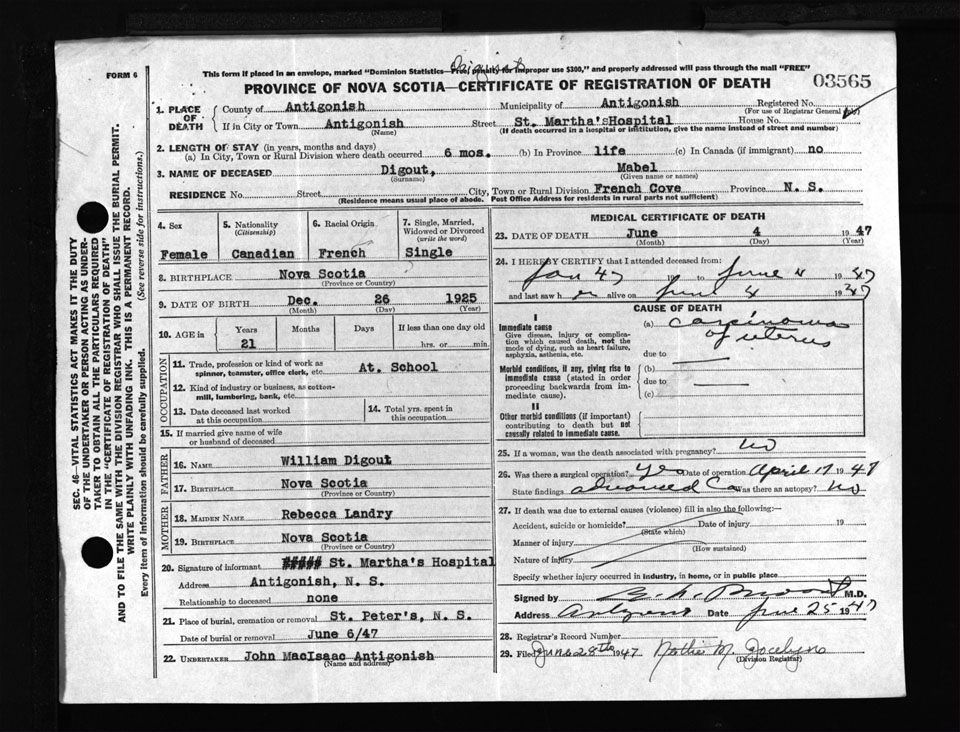 FORM 6
Digout
This form if placed in an envelope, marked "Dominion Statistics—Free, penalty for improper use $300," and properly addressed will pass through the mail "FREE"
PROVINCE OF NOVA SCOTIA—CERTIFICATE OF REGISTRATION OF DEATH
03565
1. PLACE OF DEATH
County of Antigonish Municipality of Antigonish Registered No.
(For use of Registrar General only)
If in City or Town Antigonish Street St. Martha's Hospital House No.
(Name) (If death occurred in a hospital or institution, give the name instead of street and number)
2. LENGTH OF STAY (in years, months and days)
(a) In City, Town or Rural Division where death occurred 6 mos. (b) In Province life (c) In Canada (if immigrant) no
3. NAME OF DECEASED Digout, Mabel
(Surname) (Given name or names)
RESIDENCE No. Street City, Town or Rural Division French Cove Province N. S.
(Residence means usual place of abode. Post Office Address for residents in rural parts not sufficient)
4. Sex
Female
5. Nationality
(Citizenship)
Canadian
6. Racial Origin
French
7. Single, Married, Widowed or Divorced
(write the word)
Single
8. BIRTHPLACE Nova Scotia
(Province or Country)
9. DATE OF BIRTH Dec. 26 1925
(Month) (Day) (Year)
10. AGE in Years Months Days If less than one day old
21 hrs. or min.
OCCUPATION
11. Trade, profession or kind of work as spinner, teamster, office clerk, etc. At. School
12. Kind of industry or business, as cotton-mill, lumbering, bank, etc.
13. Date deceased last worked at this occupation
14. Total yrs. spent in this occupation
15. If married give name of wife or husband of deceased
FATHER
16. NAME William Digout
17. BIRTHPLACE Nova Scotia
MOTHER
18. MAIDEN NAME Rebecca Landry
19. BIRTHPLACE Nova Scotia
(Province or Country)
20. Signature of informant ##### St. Martha's Hospital
Address Antigonish, N. S.
Relationship to deceased none
21. Place of burial, cremation or removal St. Peter's, N. S.
Date of burial or removal June 6/47
22. UNDERTAKER John MacIsaac Antigonish
(Name and address)
MEDICAL CERTIFICATE OF DEATH
23. DATE OF DEATH June 4 1947
(Month) (Day) (Year)
24. I HEREBY CERTIFY that I attended deceased from:
Jan 47 to June 4 1947
and last saw her alive on June 4 1947
CAUSE OF DEATH
I
Immediate cause
Give disease, injury or complication which caused death, not the mode of dying, such as heart failure, asphyxia, asthenia, etc.
(a) carcinoma of uterus
due to
Morbid conditions, if any, giving rise to immediate cause (stated in order proceeding backwards from immediate cause).
(b)
due to
(c)
II
Other morbid conditions (if important) contributing to death but not causally related to immediate cause.
25. If a woman, was the death associated with pregnancy? no
26. Was there a surgical operation? Yes Date of operation April 17 1947
State findings advanced Ca Was there an autopsy? no
27. If death was due to external causes (violence) fill in also the following:—
Accident, suicide or homicide? Date of injury 19
(State which)
Manner of injury
(How sustained)
Nature of injury
Specify whether injury occurred in industry, in home, or in public place
Signed by M.D.
Address Antigonish Date June 25 1947
28. Registrar's Record Number
29. Filed June 28th 1947 M. Jocelyn
(Division Registrar)
SEC. 46—VITAL STATISTICS ACT MAKES IT THE DUTY
OF THE UNDERTAKER OR PERSON ACTING AS UNDER-
TAKER TO OBTAIN ALL THE PARTICULARS REQUIRED
IN THE "CERTIFICATE OF REGISTRATION OF DEATH"
AND TO FILE THE SAME WITH THE DIVISION REGISTRAR WHO SHALL ISSUE THE BURIAL PERMIT.
WRITE PLAINLY WITH UNFADING INK. THIS IS A PERMANENT RECORD.
Every item of information should be carefully supplied. (See reverse side for instructions.)